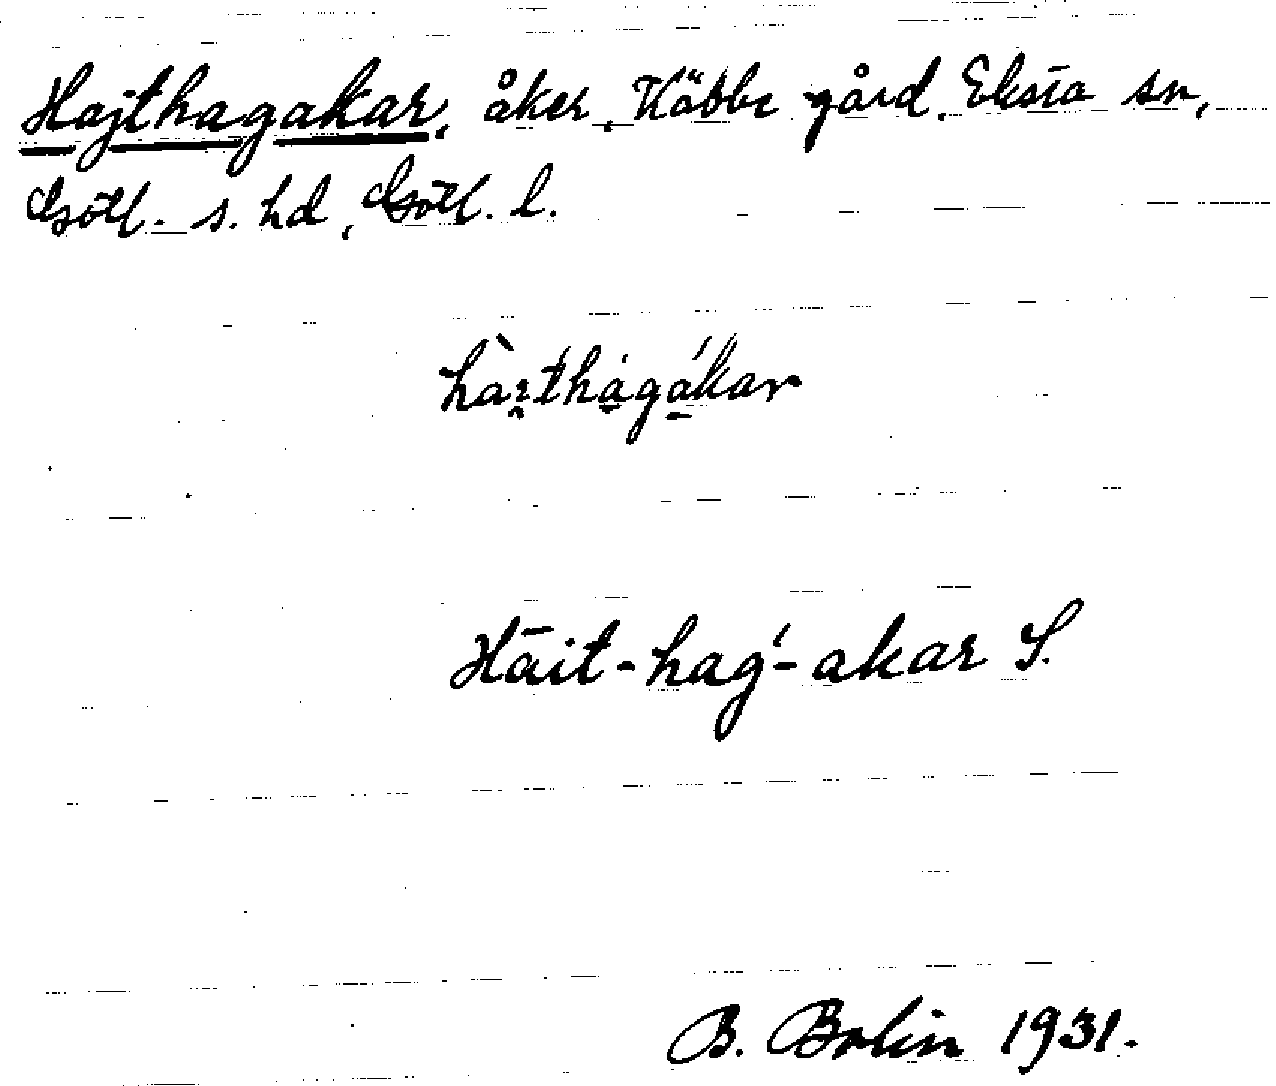 Hajthagakar, åker, Käbbe gård, Eksta sn,
Gotl. s. hd, Gotl. l.
Hāit-hag'-akar S.
B. Bolin 1931.